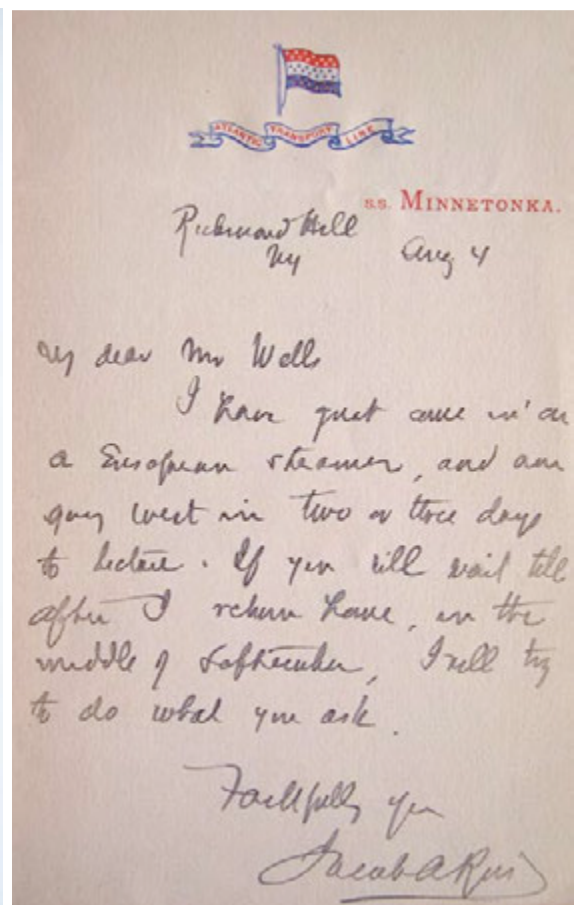 ATLANTIC TRANSPORT LINE
S.S. MINNETONKA.
Richmond Hill
NY Aug 4
My dear Mr Wells
I have just come in on
a European steamer, and am
going west in two or three days
to lecture. If you will wait till
after I return home, in the
middle of September, I will try
to do what you ask.
Faithfully yours
Jacob A Riis